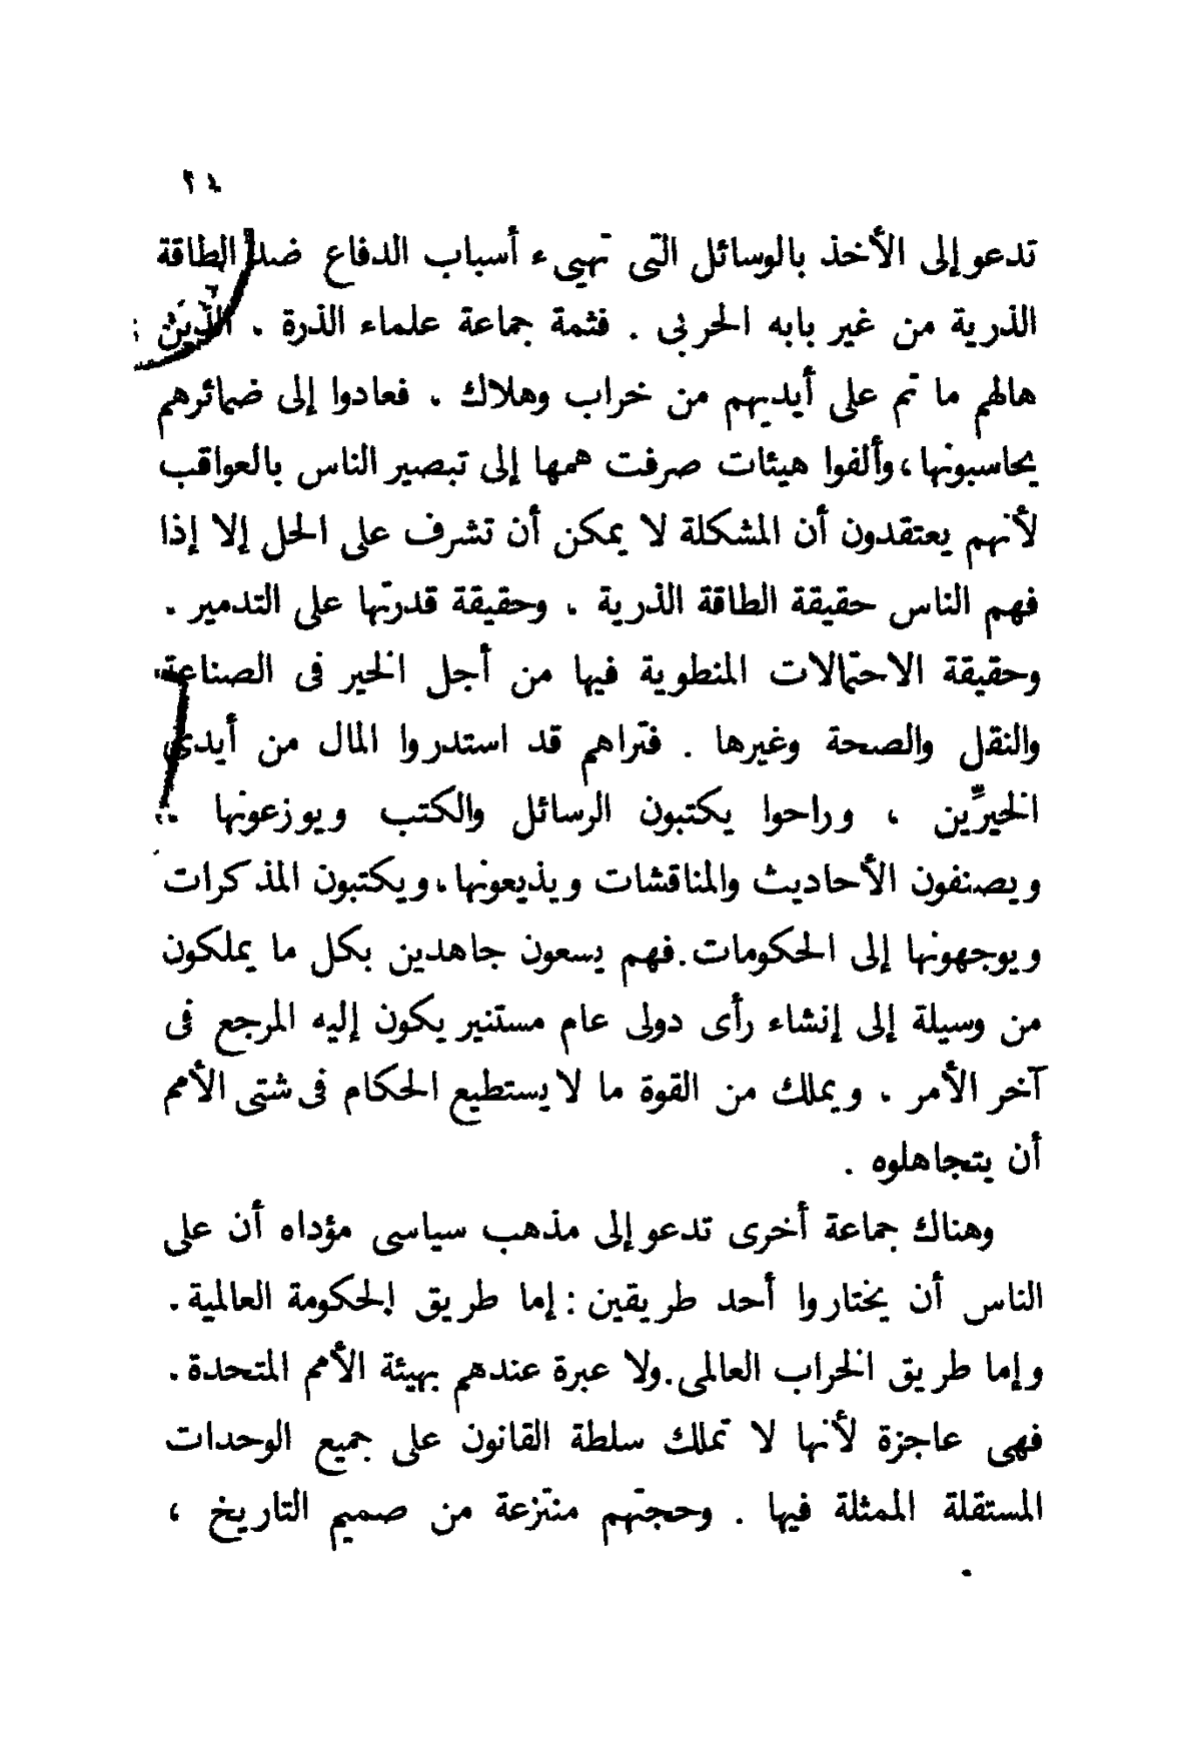 تدعو إلى الأخذ بالوسائل التى تهيىء أسباب الدفاع ضد الطاقة
الذرية من غير بابه الحربى . فثمة جماعة علماء الذرة ، الذين
هالهم ما تم على أيديهم من خراب وهلاك ، فعادوا إلى ضمائرهم
يحاسبونها ، وألفوا هيئات صرفت همها إلى تبصير الناس بالعواقب
لأنهم يعتقدون أن المشكلة لا يمكن أن تشرف على الحل إلا إذا
فهم الناس حقيقة الطاقة الذرية ، وحقيقة قدرتها على التدمير ،
وحقيقة الاحتمالات المنطوية فيها من أجل الخير فى الصناعة
والنقل والصحة وغيرها . فتراهم قد استدروا المال من أيدى
الخيرِّين ، وراحوا يكتبون الرسائل والكتب ويوزعونها ،
ويصنفون الأحاديث والمناقشات ويذيعونها ، ويكتبون المذكرات
ويوجهونها إلى الحكومات . فهم يسعون جاهدين بكل ما يملكون
من وسيلة إلى إنشاء رأى دولى عام مستنير يكون إليه المرجع فى
آخر الأمر ، ويملك من القوة ما لا يستطيع الحكام فى شتى الأمم
أن يتجاهلوه .
وهناك جماعة أخرى تدعو إلى مذهب سياسى مؤداه أن على
الناس أن يختاروا أحد طريقين : إما طريق الحكومة العالمية ،
وإما طريق الخراب العالمى . ولا عبرة عندهم بهيئة الأمم المتحدة ،
فهى عاجزة لأنها لا تملك سلطة القانون على جميع الوحدات
المستقلة الممثلة فيها . وحجتهم منتزعة من صميم التاريخ ،